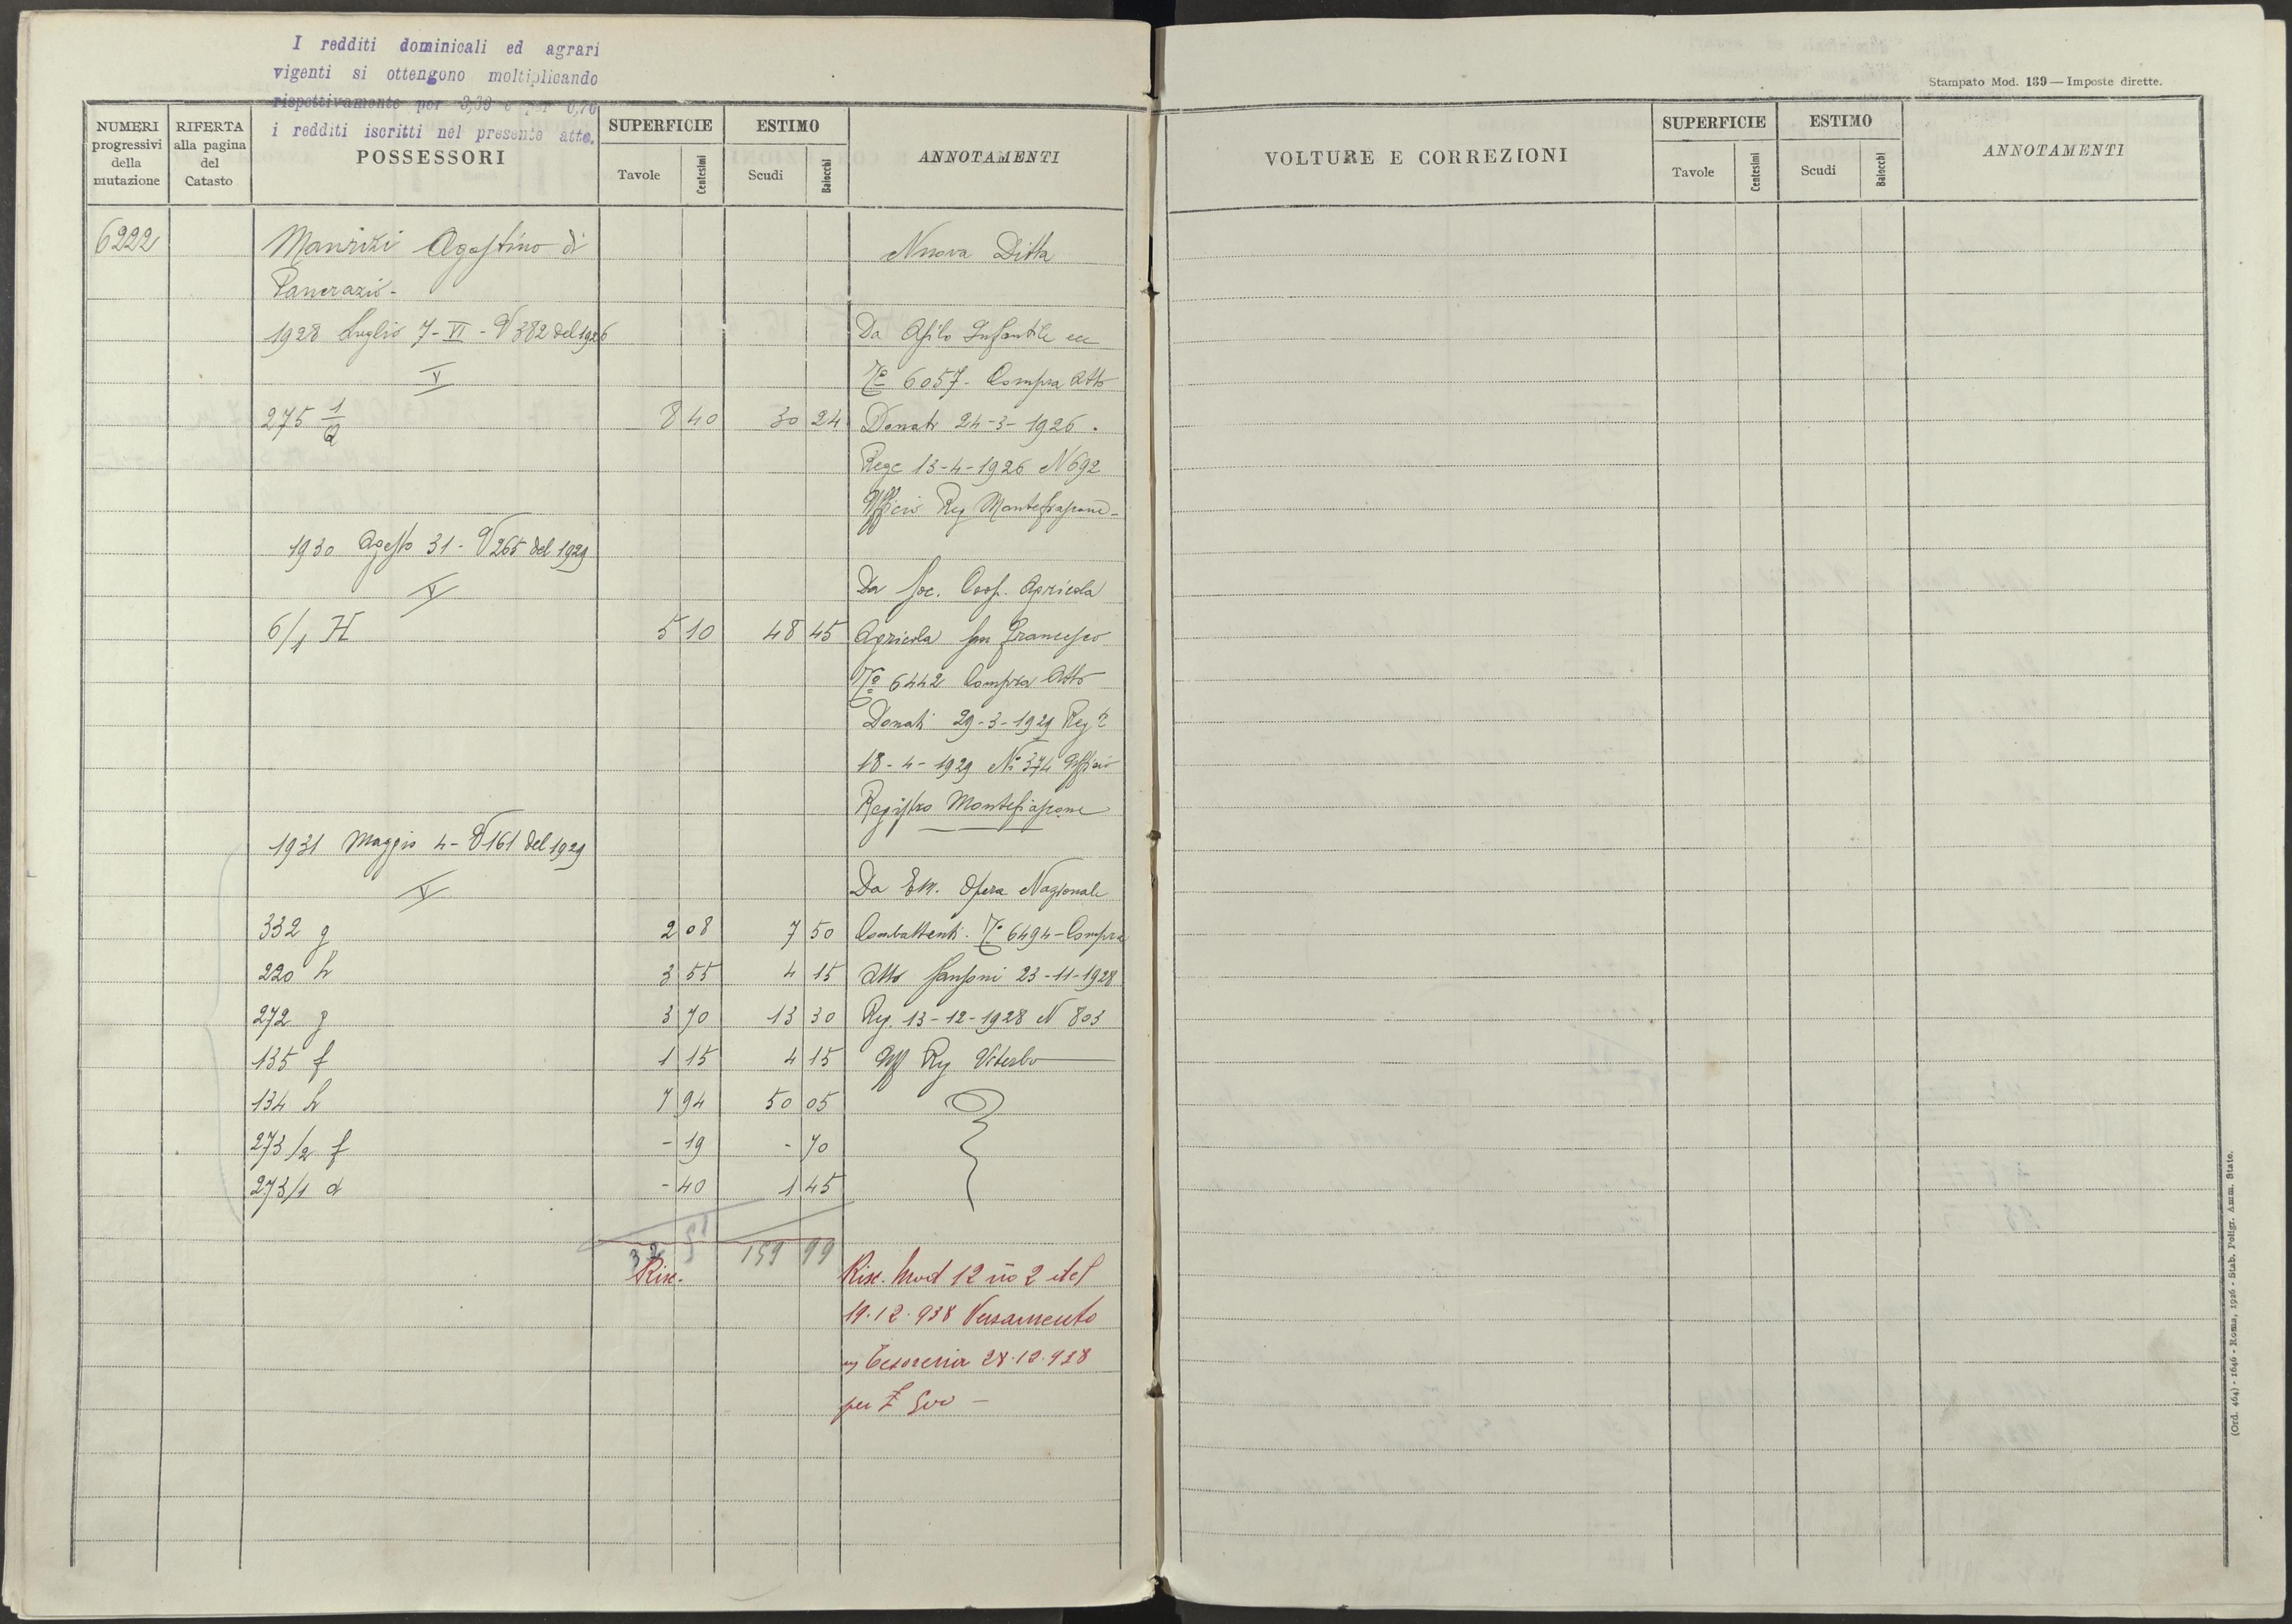 I redditi dominicali ed agrari
vigenti si ottengono moltiplicando
rispettivamente per e per 0,70
i redditi iscritti nel presente atto.
Stampato Mod. 139 — Imposte dirette.
NUMERI progressivi della mutazione
RIFERTA alla pagina del Catasto
POSSESSORI
SUPERFICIE
Tavole Centesimi
ESTIMO
Scudi Baiocchi
ANNOTAMENTI
VOLTURE E CORREZIONI
SUPERFICIE
Tavole Centesimi
ESTIMO
Scudi Baiocchi
ANNOTAMENTI
6222 Manzi Agostino di Nuova Ditta
Pancrazio -
1928 Luglio 7 - VI - V 382 del 1926 Da Asilo Infantile ecc
V N° 6057 - Compra Atto
275 1/2 8 40 30 24 Donati 24-3-1926.
Rege 13-4-1926 N 692
Ufficio Reg Montefiascone -
1930 Agosto 31 - V 265 del 1929
V Da Soc. Coop. Agricola
6/1 H 5 10 48 45 Agricola San Francesco
N° 6442 Compra Atto
Donati 29-3-1929 Reg.
18-4-1929 N° 374 Ufficio
Registro Montefiascone
1931 Maggio 4 - V 161 del 1929
V Da Opera Nazionale
332 g 2 08 7 50 Combattenti. N° 6494 - Compra
220 h 3 55 4 15 Atto Sansoni 23-11-1928
272 g 3 70 13 30 Reg. 13-12-1928 N 803
135 f 1 15 4 15 Uff Reg Viterbo
134 h 7 94 50 05
273/2 f - 19 - 70
273/1 d - 40 1 45
32 51 159 99
Risc. Risc. Mod 12 no 2 del
19.12.938 Versamento
in Tesoreria 28.12.938
per £
(Ord. 464) - 1646 - Roma, 1926 - Stab. Poligr. Amm. Stato.